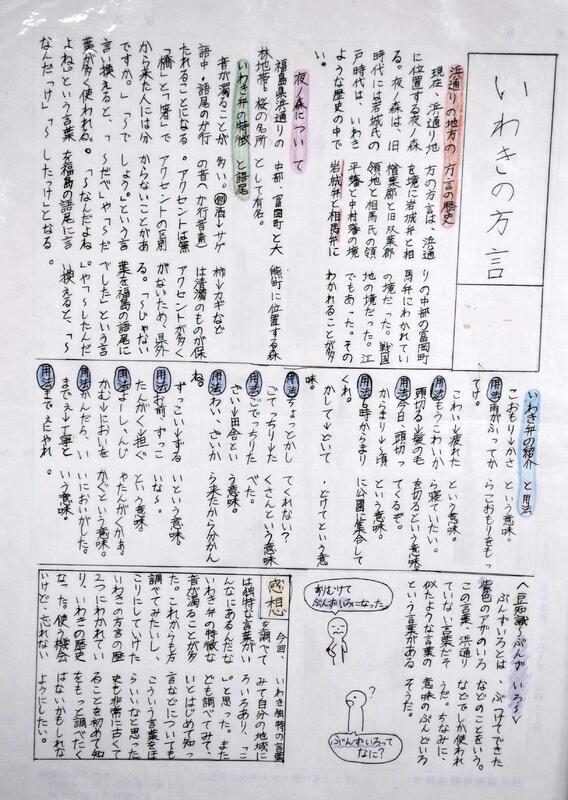 いわきの方言
浜通りの地方の方言の歴史
現在、浜通り地方の方言は、浜通りの中部の富岡町
に位置する夜ノ森を境に岩城弁と相馬弁にわかれてい
る。夜ノ森は、旧楢葉郡と旧双葉郡の境だった。戦国
時代には岩城氏の領地と相馬氏の領地の境だった。江
戸時代は、いわき平藩と中村藩の境でもあった。その
ような歴史の中で岩城弁と相馬弁にわかれることが多
い。
夜ノ森について
福島県浜通りの中部、富岡町と大熊町に位置する森
林地帯。桜の名所として有名。
いわき弁の特徴と語尾
音が濁ることが多い。例酒→サゲ 柿→カギなど
語中・語尾のか行の音へか行音素)は清濁のものが保
たれることになる。アクセントは無アクセントが多く
「橋」と「箸」でアクセントの区別がないため、県外
から来た人には分からないことがある。「〜じゃない
ですか。」「〜でしょう。」という言葉を福島の語尾に
言い換えると、「〜だべ。」や「〜だべした」という言
葉が多く使われる。「〜なんだよね」や「〜したんだ
よね。という言葉を福島の語尾に言い換えると、「〜
なんだ「け」「〜したっけ」となる。
いわき弁の紹介と用法
こおもり→かさという意味。
用法雨がふってからこおもりをもっ
てけ。
こわい→疲れたという意味。
用法もうこわいから寝ていたい。
頭切る→髪の毛を切るという意味
用法今日、頭切ってくるぞ。
からまり→〜頃という意味。
用法5時からまりに公園に集合して
くれ。
かして→といで・とげてという意
味。
用法ちょっとかしてくれない?
ごてっちり→たくさんという意味
用法ごてっちりたべた。
さい→田舎という意味。
用法わい、さいから来たから分かん
ね。
ずっこい→ずるいという意味。
用法お前、ずっこいな〜
たんがく→担ぐという意味。
用法よーしょんじゃたんがくかぁ。
かむ→においをかぐという意味。
用法かんだら、いいにおいがした。
までぇ→丁寧という意味。
用法までぇにやれ
〜豆知識〜ぶんずいろ〜
ぶんずいろとは、ぶつけてできた
紫色のアザのいろなどのことをいう。
この言葉、浜通りなどでしか使われ
ていない言葉だそうだ。ちなみに、
似たような言葉の意味のぶんどいろ
という言葉があるそうだ。
おりむけて
ぶんずいろになった
?
ぶんずいろって
なに?
感想
今回、いわき独特の言葉
を調べてみて自分の地域に
は独特な言葉がいろいろあり、「こ
んなにあるんだな」と思った。また
いわき弁の特徴なども調べてみて、
音が濁ることが多いとはじめて知っ
た。これからも方言などについても
調べてみたいし、こういう言葉をほ
こりにしていけたらいいなと思った
いわきの方言の歴史も非常に古くて
2つにわかれていることを初めて知
り、いわきの歴史をもっと調べたく
なった。使う機会はないかもしれな
いけど、忘れないようにしたい。